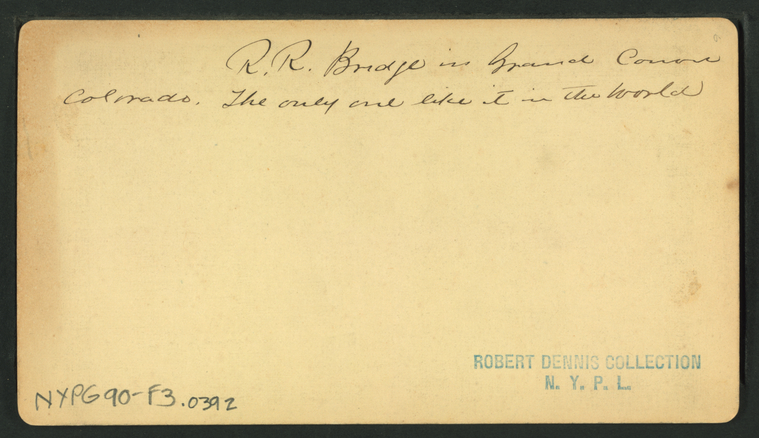 R.R. Bridge in Grand Canon
Colorado. The only one like it in the World
ROBERT DENNIS COLLECTION
N. Y. P. L.
NYPG90-F3.0392